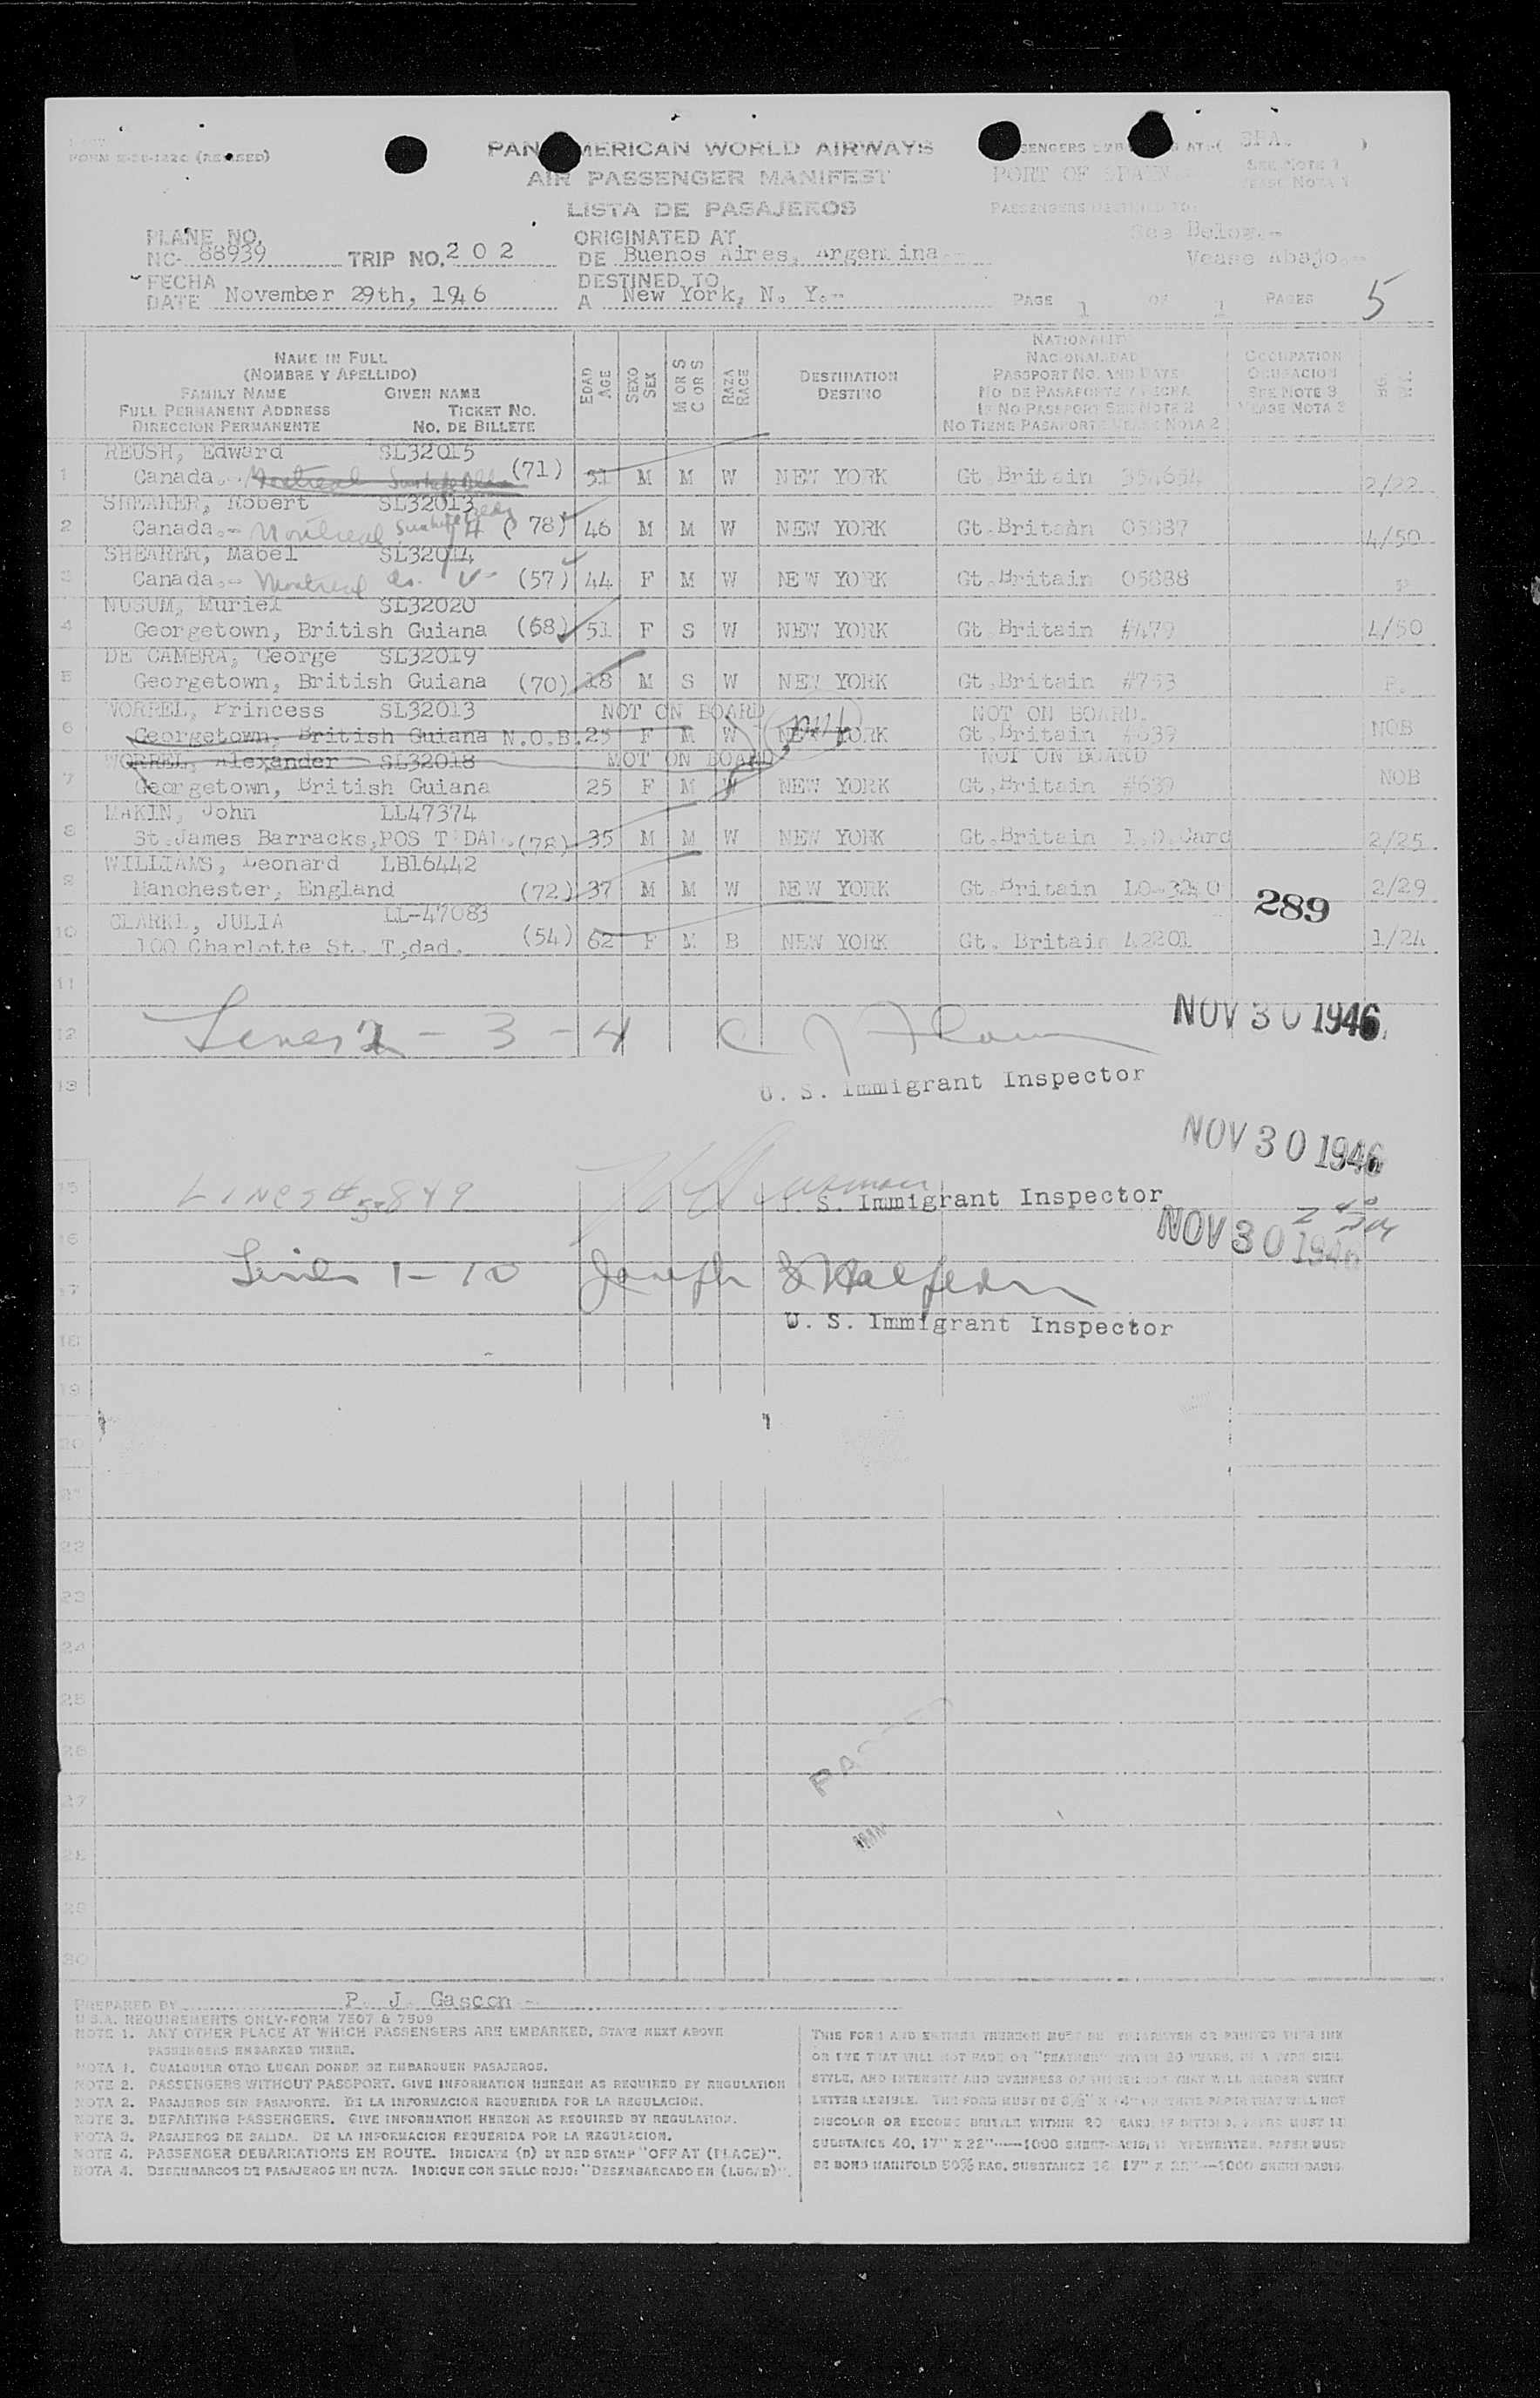 FORM (REVISED)
PAN AMERICAN WORLD AIRWAYS
AIR PASSENGER MANIFEST
LISTA DE PASAJEROS
PORT OF SPAIN
SEE NOTE 1
VEASE NOTA 1
PASSENGERS DESTINED TO
See Below.-
Vease Abajo.-
PLANE NO.
NC- 88939 TRIP NO. 202
ORIGINATED AT
DE Buenos Aires, Argentina
FECHA
DATE November 29th, 1946
DESTINED TO
A New York, N. Y.-
PAGE 1 OF 1 PAGES 5
NAME IN FULL
(NOMBRE Y APELLIDO)
FAMILY NAME GIVEN NAME
FULL PERMANENT ADDRESS TICKET NO.
DIRECCION PERMANENTE NO. DE BILLETE
EDAD AGE
SEXO SEX
M OR S C OR S
RAZA RACE
DESTINATION
DESTINO
NATIONALITY
NACIONALIDAD
PASSPORT NO. AND DATE
NO. DE PASAPORTE Y FECHA
IF NO PASSPORT SEE NOTE 2
NO TIENE PASAPORTE VEASE NOTA 2
OCCUPATION
OCUPACION
SEE NOTE 3
VEASE NOTA 3
1 REUSH, Edward SL32015
Canada.- Montreal (71) 51 M M W NEW YORK Gt.Britain 2/22
2 SHEARER, Robert SL32013
Canada.- Montreal (78) 46 M M W NEW YORK Gt.Britain 05887 4/50
3 SHEARER, Mabel SL32014
Canada.- Montreal do. (57) 44 F M W NEW YORK Gt.Britain 05888
4 NUSUM, Muriel SL32020
Georgetown, British Guiana (68) 51 F S W NEW YORK Gt.Britain #479 4/50
5 DE CAMBRA, George SL32019
Georgetown, British Guiana (70) 18 M S W NEW YORK Gt.Britain #753
6 WORREL, Princess SL32013 NOT ON BOARD NOT ON BOARD.
Georgetown, British Guiana N.O.B. 25 F M W NEW YORK Gt.Britain #639 NOB
7 WORREL, Alexander SL32018 NOT ON BOARD NOT ON BOARD
Georgetown, British Guiana 25 F M W NEW YORK Gt.Britain #639 NOB
8 MAKIN, John LL47374
St.James Barracks,POS T'DAD. (78) 35 M M W NEW YORK Gt.Britain I.D.Card 2/25
9 WILLIAMS, Leonard LB16442
Manchester, England (72) 37 M M W NEW YORK Gt.Britain 289 2/29
10 CLARKE, JULIA LL-47083
100 Charlotte St. T,dad. (54) 62 F M B NEW YORK Gt. Britain 42201 1/24
11
12 Lines 2 - 3 - 4 NOV 30 1946
13 U. S. Immigrant Inspector
NOV 30 1946
15 S. Immigrant Inspector
16 NOV 30 1946
17 Lines 1-10 Joseph
18 U. S. Immigrant Inspector
19
20
22
23
24
25
26
27
28
29
30
PREPARED BY P. J. Gascon
U.S.A. REQUIREMENTS ONLY-FORM 7507 & 7509
NOTE 1. ANY OTHER PLACE AT WHICH PASSENGERS ARE EMBARKED, STATE NEXT ABOVE
PASSENGERS EMBARKED THERE.
NOTA 1. CUALQUIER OTRO LUGAR DONDE SE EMBARQUEN PASAJEROS.
NOTE 2. PASSENGERS WITHOUT PASSPORT. GIVE INFORMATION HEREON AS REQUIRED BY REGULATION
NOTA 2. PASAJEROS SIN PASAPORTE. DE LA INFORMACION REQUERIDA POR LA REGULACION.
NOTE 3. DEPARTING PASSENGERS. GIVE INFORMATION HEREON AS REQUIRED BY REGULATION.
NOTA 3. PASAJEROS DE SALIDA. DE LA INFORMACION REQUERIDA POR LA REGULACION.
NOTE 4. PASSENGER DEBARKATIONS EN ROUTE. INDICATE (D) BY RED STAMP "OFF AT (PLACE)".
NOTA 4. DESEMBARCOS DE PASAJEROS EN RUTA. INDIQUE CON SELLO ROJO: "DESEMBARCADO EN (LUGAR)".
THIS FORM AND ENTRIES THEREON MUST BE TYPEWRITTEN OR PRINTED WITH INK
OR DYE THAT WILL NOT FADE OR "FEATHER" WITHIN 20 YEARS, IN A TYPE SIZE,
STYLE, AND INTENSITY AND EVENNESS OF IMPRESSION THAT WILL RENDER EVERY
LETTER LEGIBLE. THIS FORM MUST BE 8½" X 14" ON WHITE PAPER THAT WILL NOT
DISCOLOR OR BECOME BRITTLE WITHIN 20 YEARS; IF DITTOED, PAPER MUST BE
SUBSTANCE 40, 17" X 22"—1000 SHEET-BASIS; IF TYPEWRITTEN, PAPER MUST
BE BOND MANIFOLD 50% RAG, SUBSTANCE 16 17" X 22"—1000 SHEET BASIS.